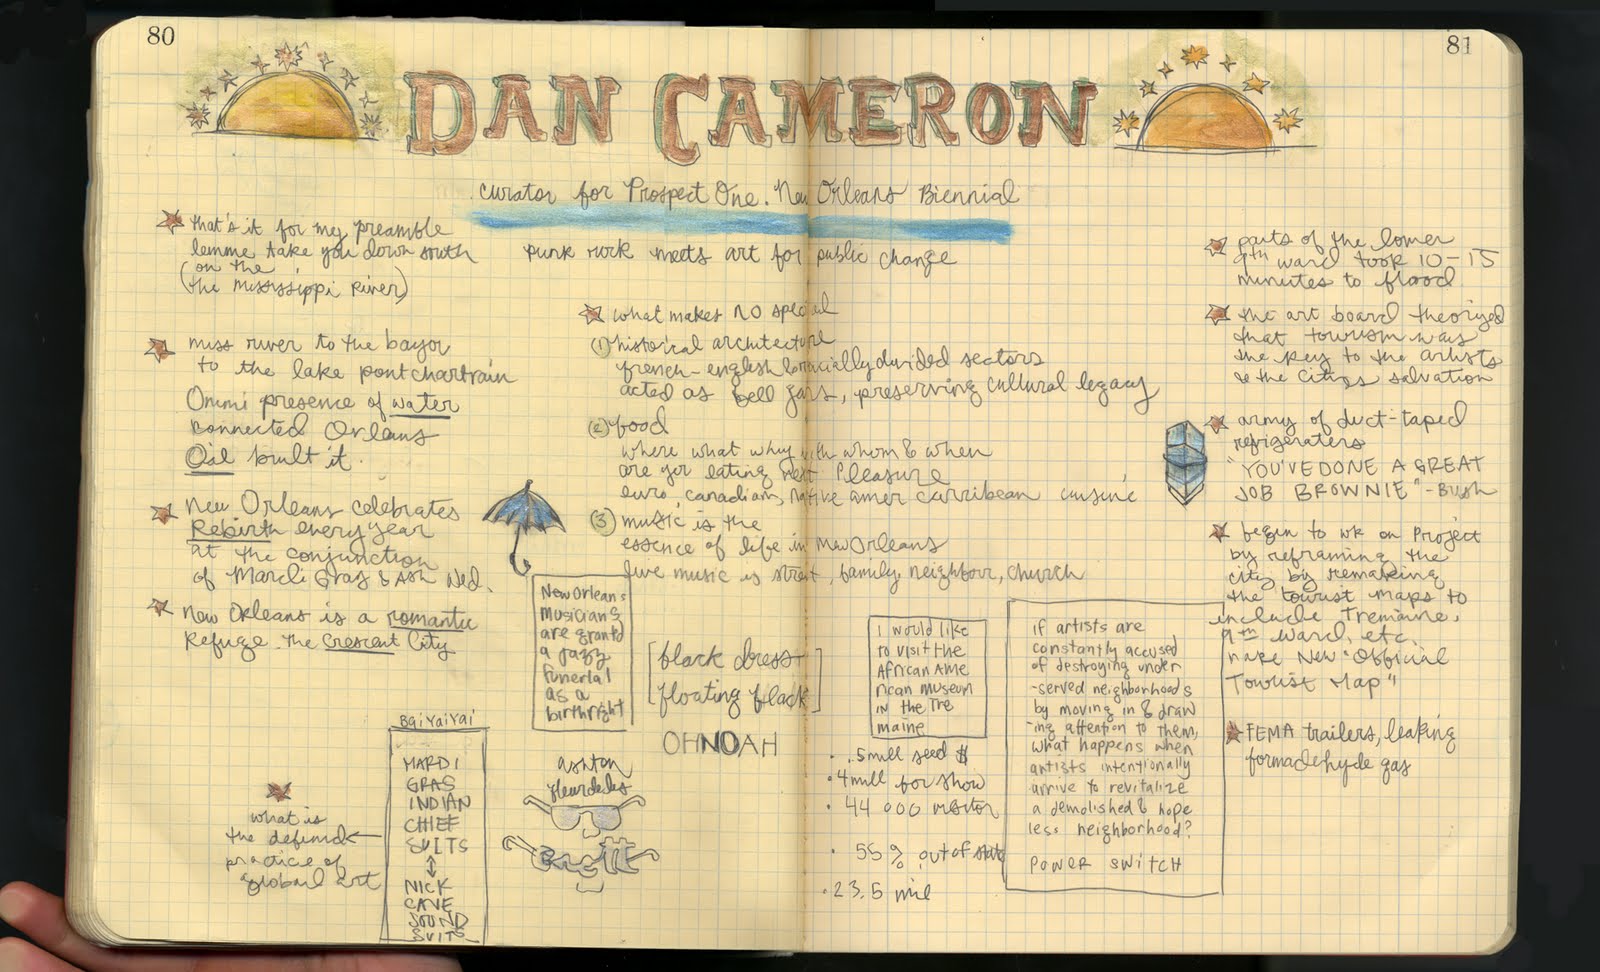 80
81
DAN CAMERON
curator for Prospect One. New Orleans Biennial
that's it for my preamble
lemme take you down south
(on the
(the Mississippi River)
miss river to the bayou
to the lake pontchartrain
Omni presence of water
connected Orleans
Oil built it.
New Orleans celebrates
Rebirth every year
at the conjunction
of Mardi Gras & Ash Wed.
New Orleans is a romantic
Refuge. the Crescent City
punk rock meets art for public change
what makes NO special
(1) historical architecture
french-english & racially divided sectors
acted as bell jars, preserving cultural legacy
(2) food
where what why with whom & when
are you eating next Pleasure
euro, canadian, native amer carribean cuisine
(3) music is the
essence of life in New Orleans
live music is street, family, neighbour, church
New Orleans
musicians
are grantd
a jazz
funerlal
as a
birthright
[black dress
floating flack]
OHNOAH
ashton
fleurdelys
BaiYaiYai
MARDI
GRAS
INDIAN
CHIEF
SUITS
NICK
CAVE
SOUND
SUITS
what is
the defind
practice of
global art
I would like
to visit the
African Ame
rican museum
in the Tre
maine
.5mill seed $
4mill for show
44 000 visitor
55% out of state
23.5 mil
if artists are
constantly accused
of destroying under
-served neighborhoods
by moving in & draw
-ing attention to them,
what happens when
artists intentionally
arrive to revitalize
a demolished & hope
less neighborhood?
POWER SWITCH
parts of the lower
9th ward took 10-15
minutes to flood
the art board theorized
that tourism was
the key to the artists
& the cities salvation
army of duct-taped
refrigeraters
"YOU'VE DONE A GREAT
JOB BROWNIE" -Bush
begin to wk on Project
by reframing the
city by remaking
the tourist maps to
include Tremaine,
9th ward, etc.
make New "Official
Tourist Map"
FEMA trailers, leaking
formadehyde gas